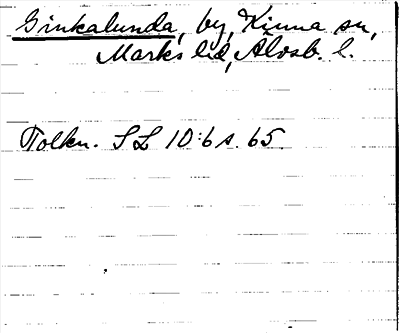 Ginkalunda, by, Kinna sn,
Marks hd, Älvsb. l.
Tolkn. SL 10:6 s. 65.